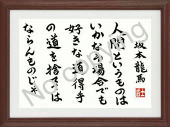 坂本龍馬
人間というものは
いかなる場合でも
好きな道得手
の道を捨てては
ならんものじゃ
No Copying